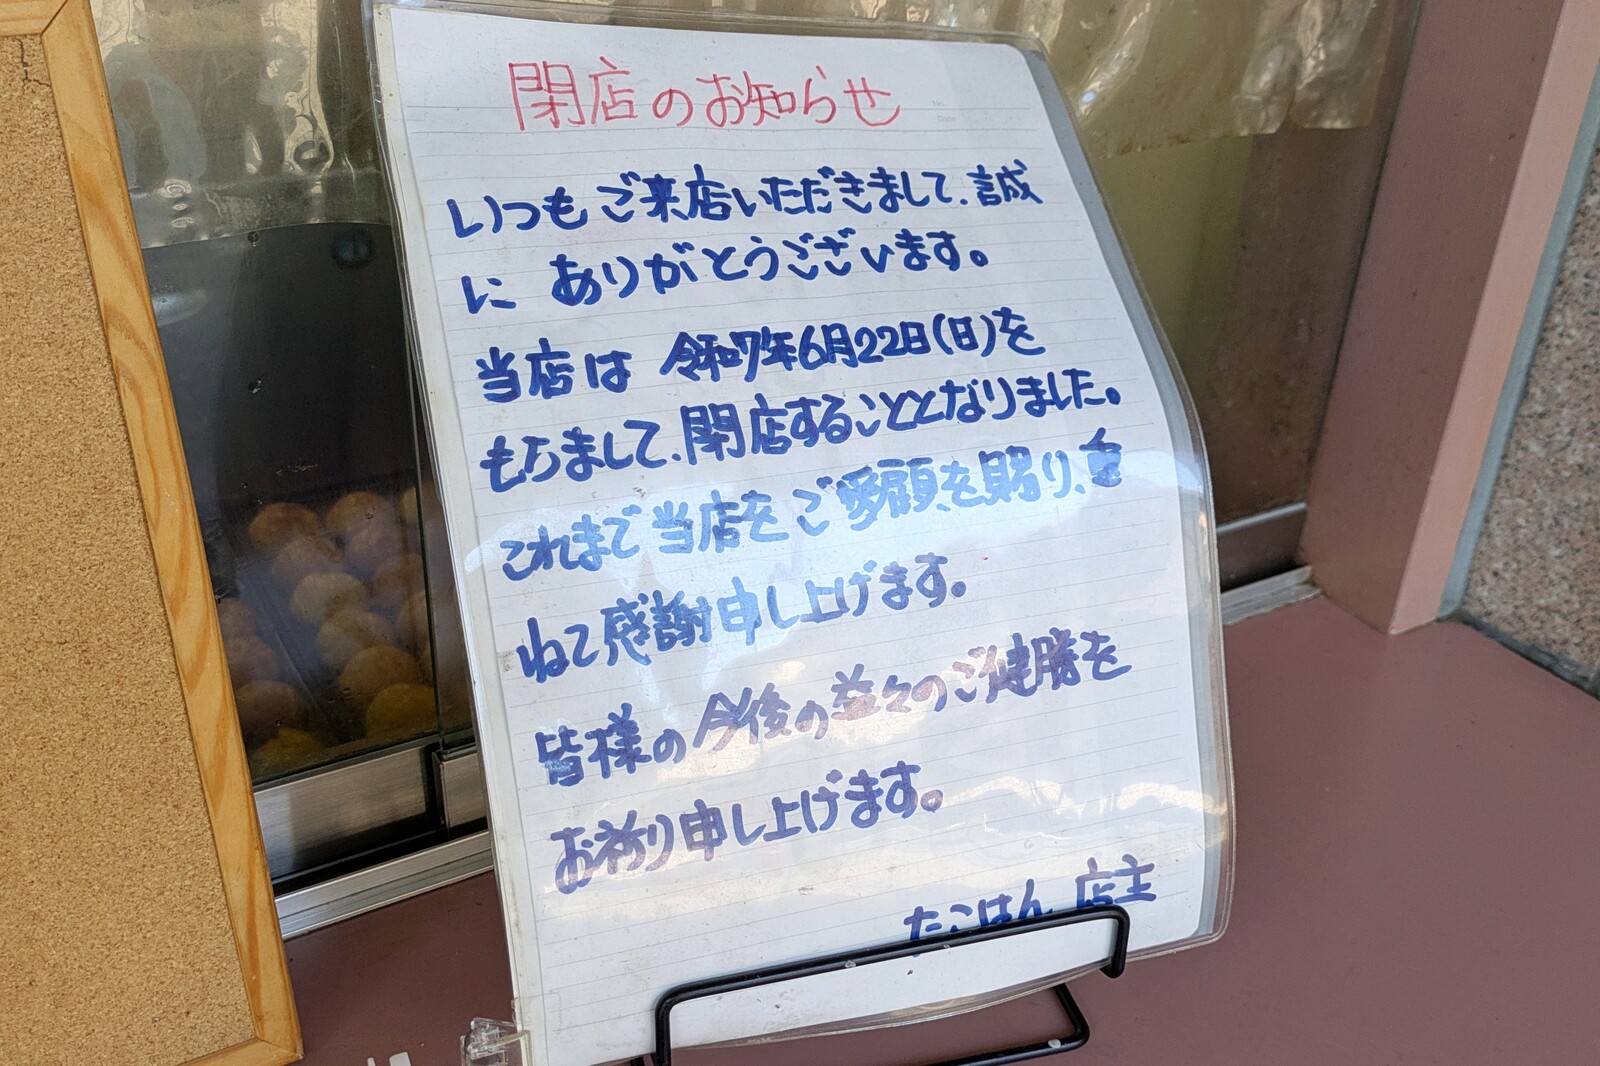 閉店のお知らせ
いつもご来店いただきまして、誠
に ありがとうございます。
当店は 令和7年6月22日(日)を
もちまして、閉店することとなりました。
これまで当店をご愛顧を賜り、重
ねて感謝申し上げます。
皆様の今後の益々のご健勝を
お祈り申し上げます。
たこはん 店主